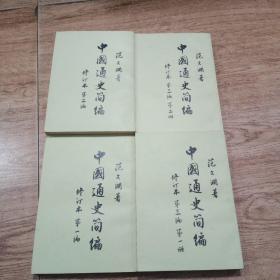 范文澜著
中國通史简编
修订本 第二编
范文澜著
中國通史简编
修订本 第三编 第二册
范文澜著
中國通史简编
修订本 第一编
范文澜著
中國通史简编
修订本 第三编 第一册